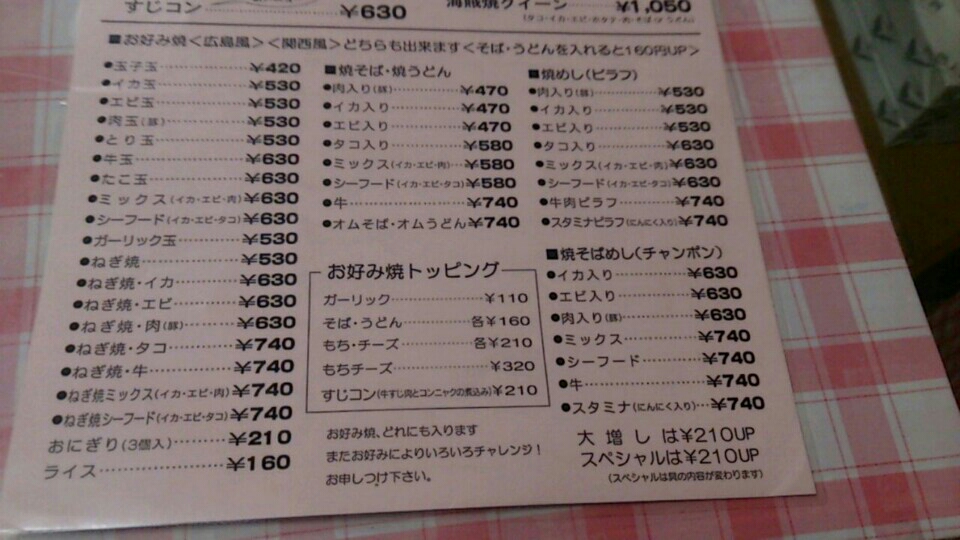 すじコン ¥630
海賊焼クイーン ¥1,050
(タコ・イカ・エビ・ホタテ・肉・そば or うどん)
■お好み焼<広島風><関西風>どちらも出来ます<そば・うどんを入れると160円UP>
●玉子玉 ¥420
●イカ玉 ¥530
●エビ玉 ¥530
●肉玉(豚) ¥530
●とり玉 ¥530
●牛玉 ¥630
●たこ玉 ¥630
●ミックス(イカ・エビ・肉) ¥630
●シーフード(イカ・エビ・タコ) ¥630
●ガーリック玉 ¥530
●ねぎ焼 ¥530
●ねぎ焼・イカ ¥630
●ねぎ焼・エビ ¥630
●ねぎ焼・肉(豚) ¥630
●ねぎ焼・タコ ¥740
●ねぎ焼・牛 ¥740
●ねぎ焼ミックス(イカ・エビ・肉) ¥740
●ねぎ焼シーフード(イカ・エビ・タコ) ¥740
おにぎり(3個入) ¥210
ライス ¥160
■焼そば・焼うどん
●肉入り(豚) ¥470
●イカ入り ¥470
●エビ入り ¥470
●タコ入り ¥580
●ミックス(イカ・エビ・肉) ¥580
●シーフード(イカ・エビ・タコ) ¥580
●牛 ¥740
●オムそば・オムうどん ¥740
お好み焼トッピング
ガーリック ¥110
そば・うどん 各¥160
もち・チーズ 各¥210
もちチーズ ¥320
すじコン(牛すじ肉とコンニャクの煮込み) ¥210
お好み焼、どれにも入ります
またお好みによりいろいろチャレンジ!
お申しつけ下さい。
■焼めし(ピラフ)
●肉入り(豚) ¥530
●イカ入り ¥530
●エビ入り ¥530
●タコ入り ¥630
●ミックス(イカ・エビ・肉) ¥630
●シーフード(イカ・エビ・タコ) ¥630
●牛肉ピラフ ¥740
●スタミナピラフ(にんにく入り) ¥740
■焼そばめし(チャンポン)
●イカ入り ¥630
●エビ入り ¥630
●肉入り(豚) ¥630
●ミックス ¥740
●シーフード ¥740
●牛 ¥740
●スタミナ(にんにく入り) ¥740
大増しは¥210UP
スペシャルは¥210UP
(スペシャルは具の内容が変わります)